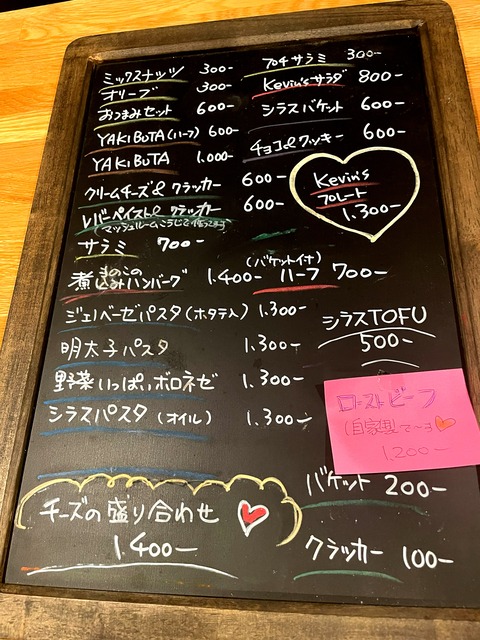 ミックスナッツ 300-
オリーブ 300-
おつまみセット 600-
YAKIBUTA (ハーフ) 600-
YAKIBUTA 1.000-
クリームチーズ&クラッカー 600-
レバーペイスト&クラッカー 600-
マッシュルームこうじで作ってます
サラミ 700-
きのこの
煮込みハンバーグ 1.400-
(バケット付)
ハーフ 700-
ジェノベーゼパスタ (ホタテ入) 1.300-
明太子パスタ 1.300-
野菜いっぱいボロネゼ 1.300-
シラスパスタ (オイル) 1.300-
チーズの盛り合わせ
1.400-
プチサラミ 300-
Kevin'sサラダ 800-
シラスバケット 600-
チョコ&クッキー 600-
Kevin's
プレート
1.300-
シラスTOFU
500-
ローストビーフ
(自家製で〜す
1.200-
バケット 200-
クラッカー 100-